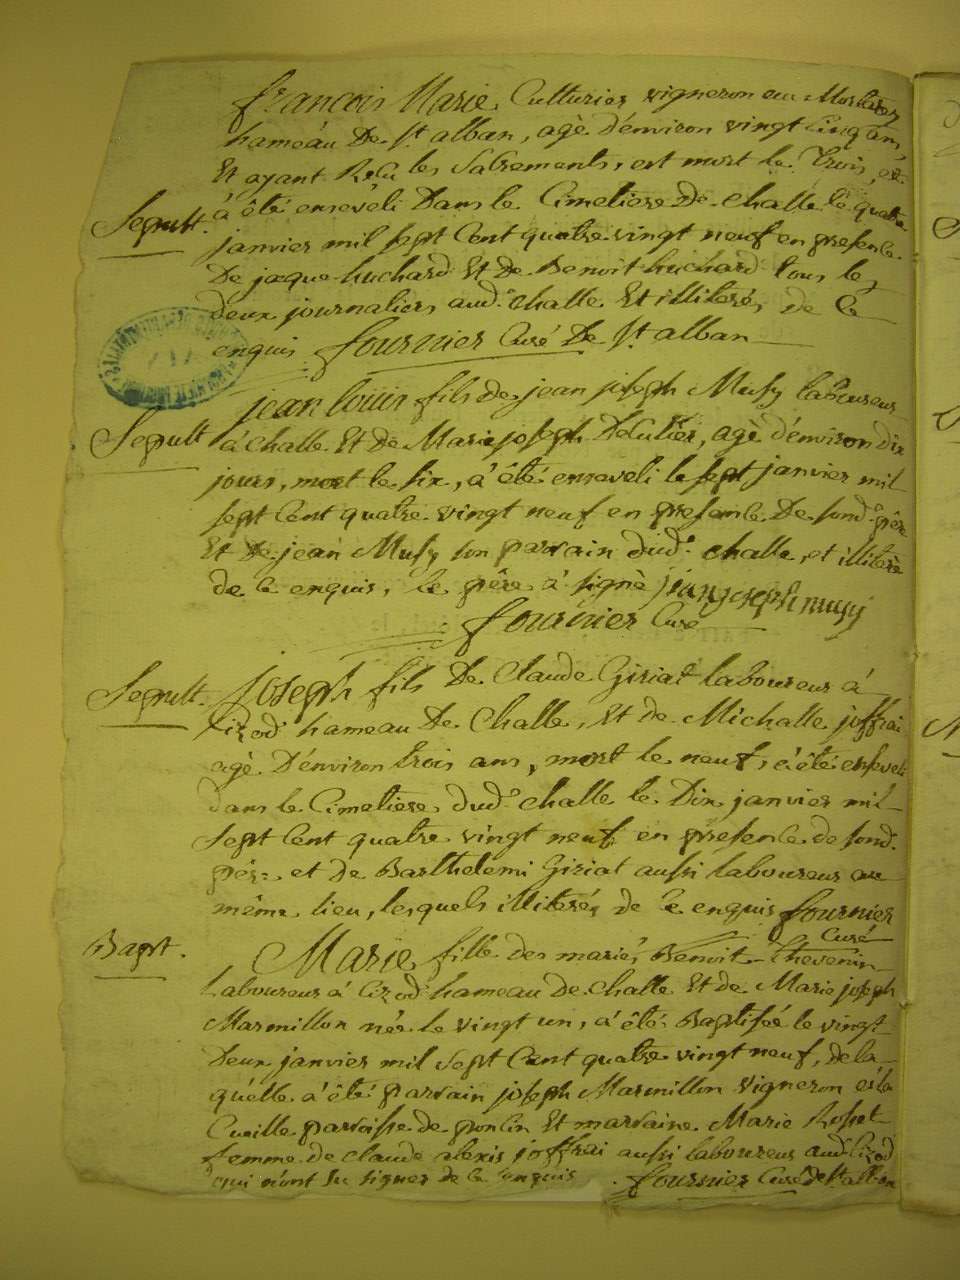 françois Marie Cutturier vigneron au Mortarey
hameau De St alban, agè d'environ vingt Cinq ans,
Et ayant Reçu les Sacrements, est mort le Trois, et
Sepult. à été enseveli Dans le Cimetiere De Challe le quatre
janvier mil sept Cent quatre vingt neuf en presence
De jaque huchard Et De Benoit huchard tous les
deux journaliers aud. challe Et illiterés de Ce
enquis fournier Curé De St alban
jean louis fils de jean joseph Musy laboureur
Sepult à Challe Et de Marie joseph Decutier, agè d'environ dix
jours, mort le six, à été enseveli le sept janvier mil
sept Cent quatre vingt neuf en presence De sond. pére
Et De jean Musy son parrain dud. challe, et illiterè
de Ce enquis, Le pére à signè jean joseph musy
fournier Curé
Sepult. joseph fils De Claude Giriat laboureur à
Cizod hameau De Challe, Et de Michalle joffrai
agè D'environ trois ans, mort le neuf, à été enseveli
dans le Cimetiere dud. challe le Dix janvier mil
sept Cent quatre vingt neuf en presence de sond.
pére et de Barthelemi Giriat aussi laboureur au
même lieu, lesquels illiterés de Ce enquis fournier
Curé
Bapt. Marie fille des mariés Benoit Thevenin
laboureur à Cizod hameau De Challe Et de Marie joseph
Marmillon née le vingt un, à été Baptisée le vingt
Deux janvier mil Sept Cent quatre vingt neuf, de la
quélle à été parrain joseph Marmillon vigneron à la
Cueille parroisse de poncin Et marraine Marie Rosset
femme de claude alexis joffrai aussi laboureur aud. Cizod
qui n'ont su signer de Ce enquis fournier Curé de St alban